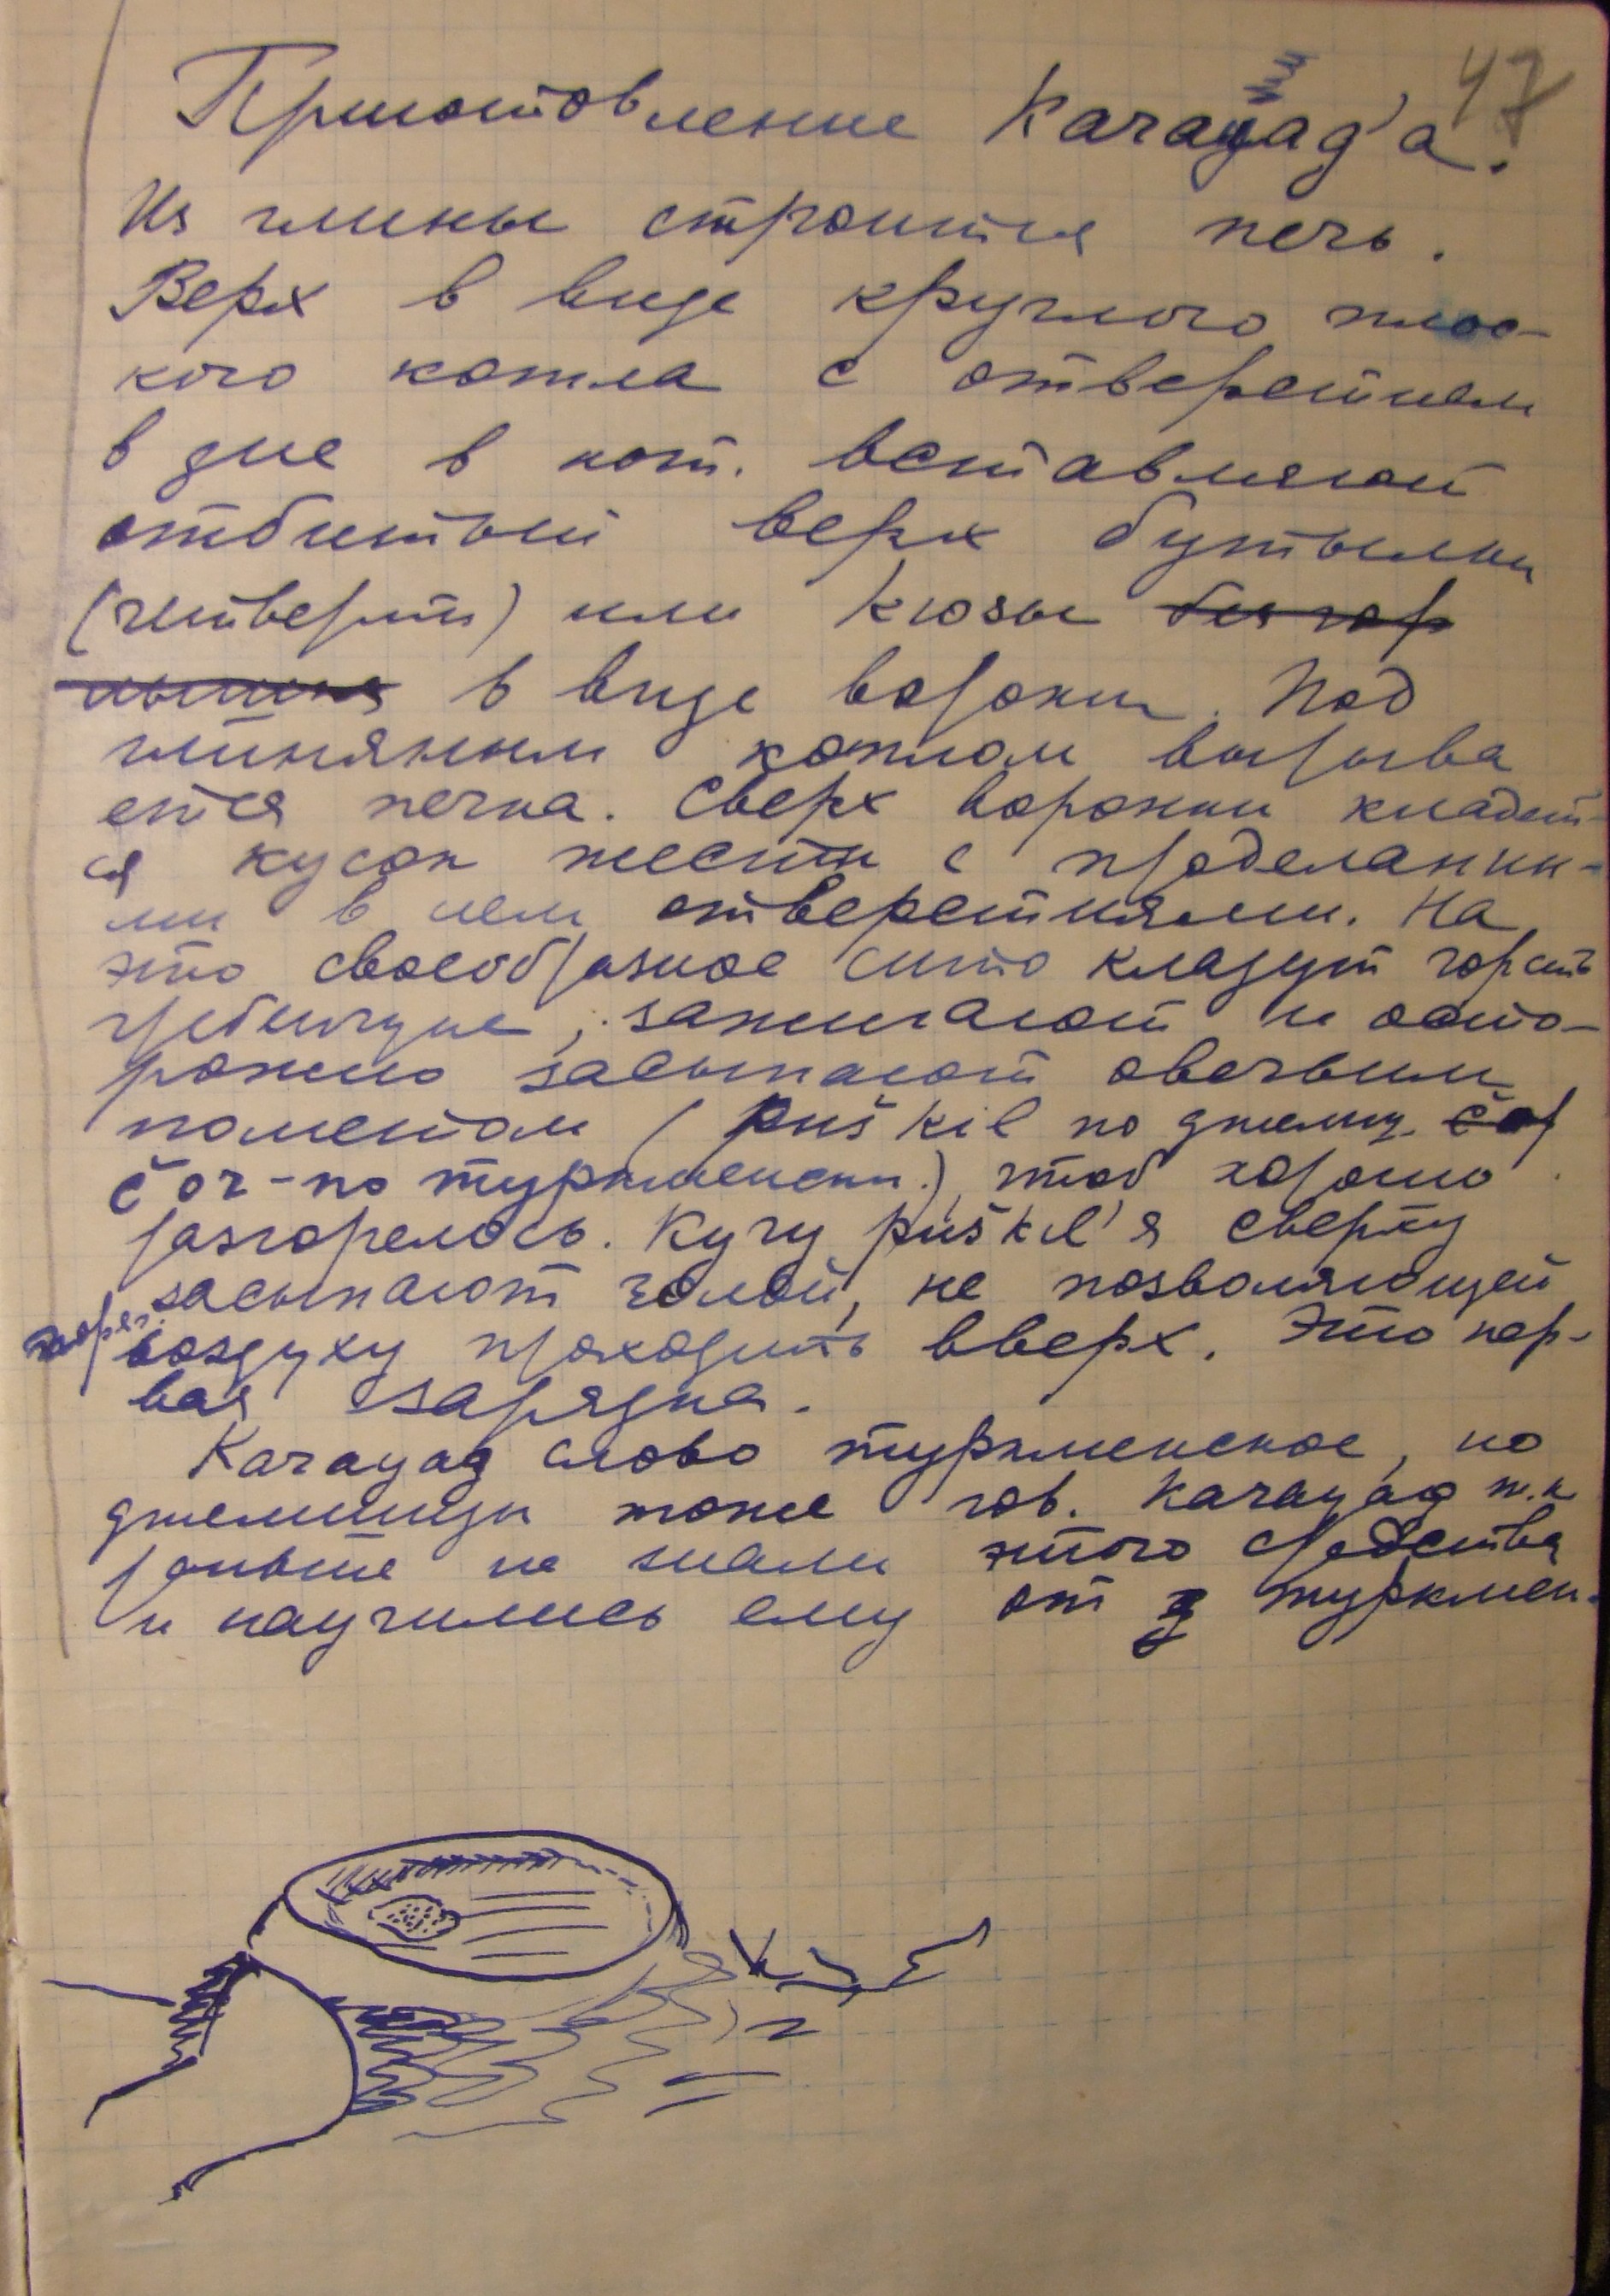 47
Приготовление Karaɣag'а.
Из глины строится печь.
Верх в виде круглого плос-
кого котла с отверстием
в дне в кот. вставляют
отбитый верх бутылки
(четверти) или кюзы без гор
лышка в виде воронки. Под
глиняным котлом вырыва
ется печка. Сверх воронки кладет-
ся кусок жести с проделанны-
ми в нем отверстиями. На
это своеобразное сито кладут горсть
, зажигают и осто-
рожно засыпают овечьим
пометом (puškil по джемш. čor
čor - по туркменски.), чтоб хорошо
разгорелось. Кучу puškil'я сверху
засыпают золой, не позволяющей
воздуху проходить вверх. Это пер-
вая зарядка.
Karaɣag слово туркменское, но
джемшиды тоже гов. Karaɣag т.к
раньше не знали этого средства
и научились ему от туркмен.